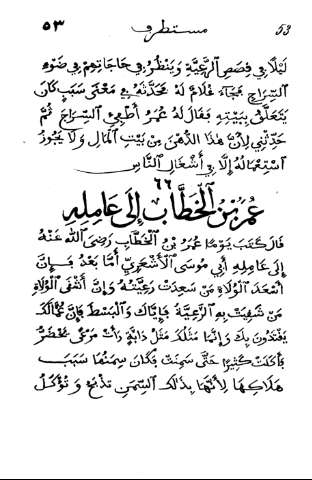 ٥٣ مستطرف 53
لَيْلًا فِي قِصَصِ الرَّعِيَّةِ وَيَنْظُرُ فِي حَاجَاتِهِمْ فِي ضَوْءِ
السِّرَاجِ فَجَاءَ غُلَامٌ لَهُ فَحَدَّثَهُ فِي مَعْنَى سَبَبٍ كَانَ
يَتَعَلَّقُ بِبَيْتِهِ فَقَالَ لَهُ عُمَرُ أَطْفِئِ السِّرَاجَ ثُمَّ
حَدِّثْنِي لِأَنَّ هَذَا الدُّهْنَ مِنْ بَيْتِ الْمَالِ وَلَا يَجُوزُ
اسْتِعْمَالُهُ إِلَّا فِي أَشْغَالِ النَّاسِ
٦٦
عُمَرُ بْنُ الْخَطَّابِ إِلَى عَامِلِهِ
قَالَ كَتَبَ يَوْمًا عُمَرُ بْنُ الْخَطَّابِ رَضِيَ اللهُ عَنْهُ
إِلَى عَامِلِهِ أَبِي مُوسَى الْأَشْعَرِيِّ أَمَّا بَعْدُ فَإِنَّ
أَسْعَدَ الْوُلَاةِ مَنْ سَعِدَتْ رَعِيَّتُهُ وَإِنَّ أَشْقَى الْوُلَاةِ
مَنْ شَقِيَتْ بِهِ الرَّعِيَّةُ فَإِيَّاكَ وَالْبَسْطَ فَإِنَّ عُمَّالَكَ
يَقْتَدُونَ بِكَ وَإِنَّمَا مَثَلُكَ مَثَلُ دَابَّةٍ رَأَتْ مَرْعًى مُخْضَرًّا
فَأَكَلَتْ كَثِيرًا حَتَّى سَمِنَتْ فَكَانَ سِمَنُهَا سَبَبَ
هَلَاكِهَا لِأَنَّهَا بِذَلِكَ السِّمَنِ تُذْبَحُ وَتُؤْكَلُ